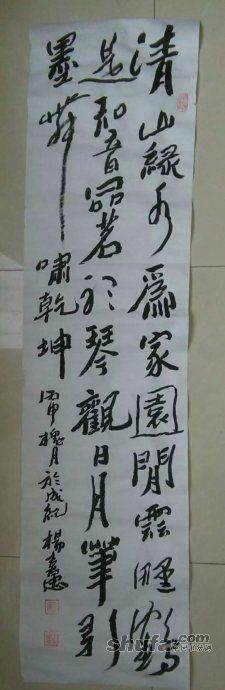 清山緑水爲家園閒雲野鶴
是知音品茗於琴觀日月筆引
墨舞嘯乾坤
丙申槐月於成紀楊
shufa.com